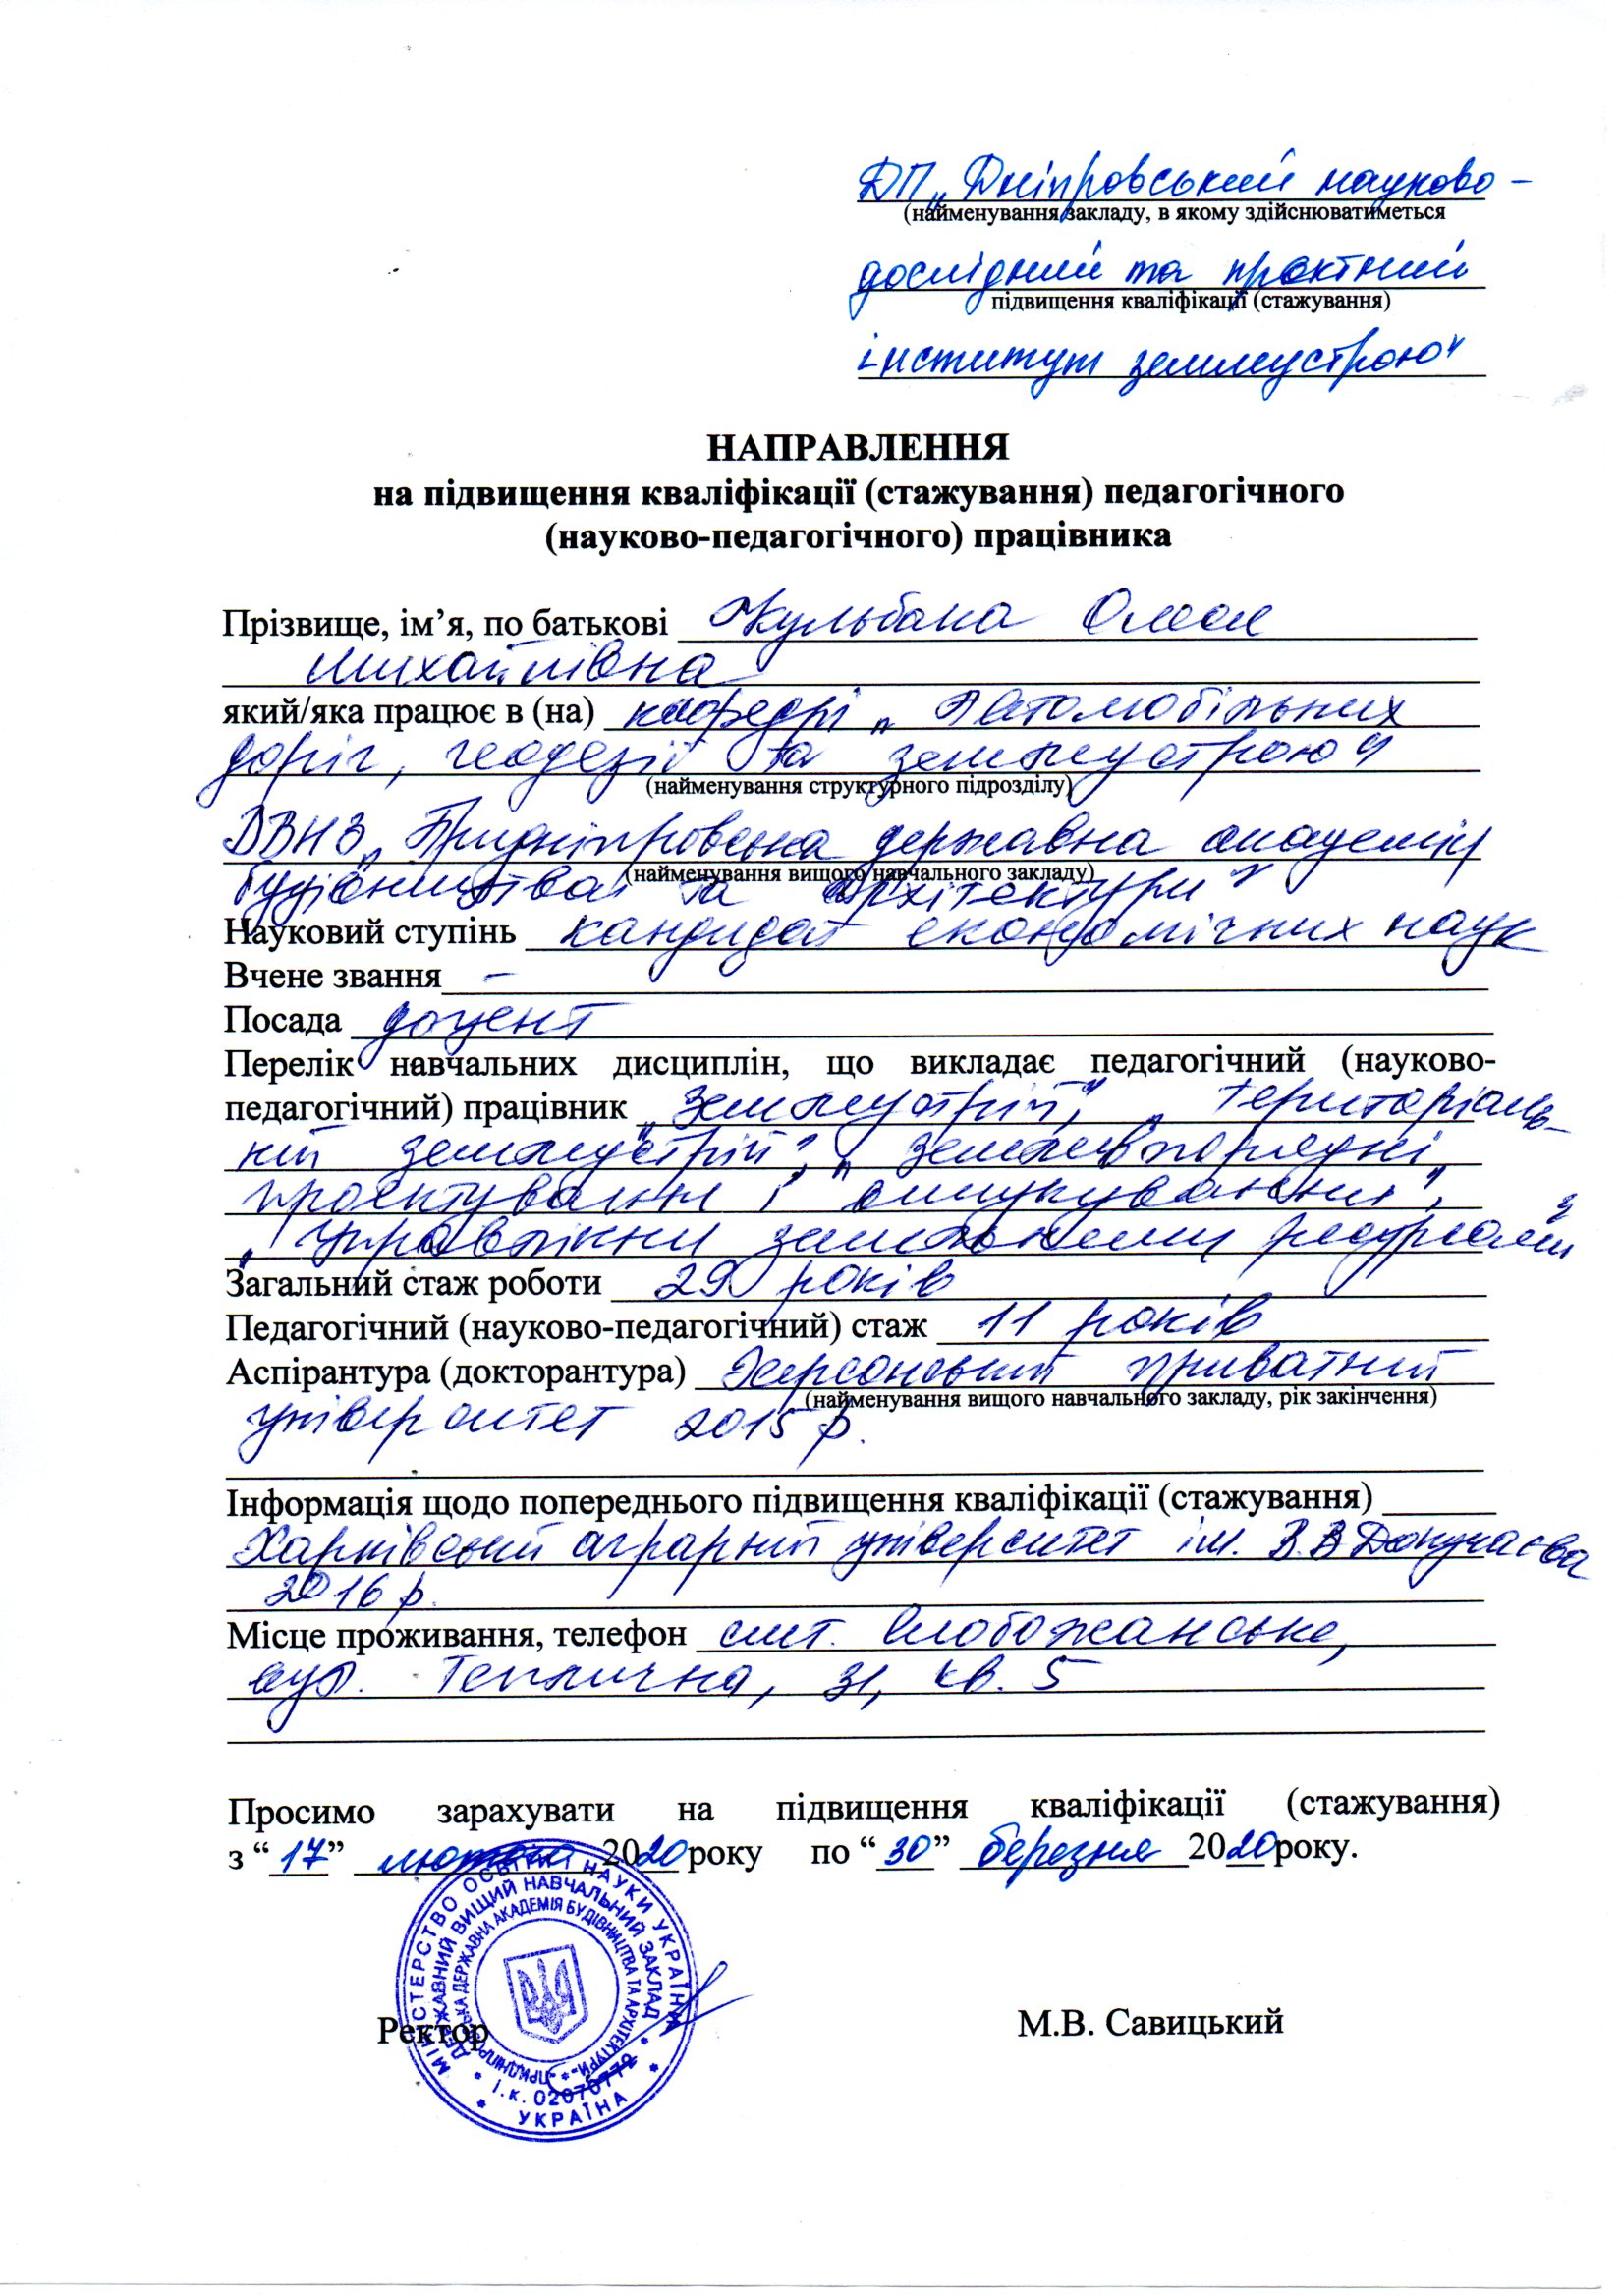 ДП „Дніпровський науково-
(найменування закладу, в якому здійснюватиметься
дослідний та проектний
підвищення кваліфікації (стажування)
інститут землеустрою"
НАПРАВЛЕННЯ
на підвищення кваліфікації (стажування) педагогічного
(науково-педагогічного) працівника
Прізвище, ім’я, по батькові Кульбака Олена
Михайлівна
який/яка працює в (на) кафедрі „Автомобільних
доріг, геодезії та землеустрою"
(найменування структурного підрозділу)
ДВНЗ „Придніпровська державна академія
(найменування вищого навчального закладу)
будівництва та архітектури"
Науковий ступінь кандидат економічних наук
Вчене звання –
Посада доцент
Перелік навчальних дисциплін, що викладає педагогічний (науково-
педагогічний) працівник „Землеустрій", „Територіаль-
ний землеустрій", „Землевпорядні
проектування і вишукування",
„Управління земельними ресурсами"
Загальний стаж роботи 29 років
Педагогічний (науково-педагогічний) стаж 11 років
Аспірантура (докторантура) Херсонський приватний
(найменування вищого навчального закладу, рік закінчення)
університет 2015 р.
Інформація щодо попереднього підвищення кваліфікації (стажування)
Харківський аграрний університет ім. В.В Докучаєва
2016 р.
Місце проживання, телефон смт. Слобожанське,
вул. Теплична, 31, кв. 5
Просимо зарахувати на підвищення кваліфікації (стажування)
з “17” лютого 2020 року по “30” березня 2020 року.
МІНІСТЕРСТВО ОСВІТИ І НАУКИ УКРАЇНИ
ДЕРЖАВНИЙ ВИЩИЙ НАВЧАЛЬНИЙ ЗАКЛАД
ПРИДНІПРОВСЬКА ДЕРЖАВНА АКАДЕМІЯ БУДІВНИЦТВА ТА АРХІТЕКТУРИ
Ректор М.В. Савицький
і.к. 02070772
УКРАЇНА